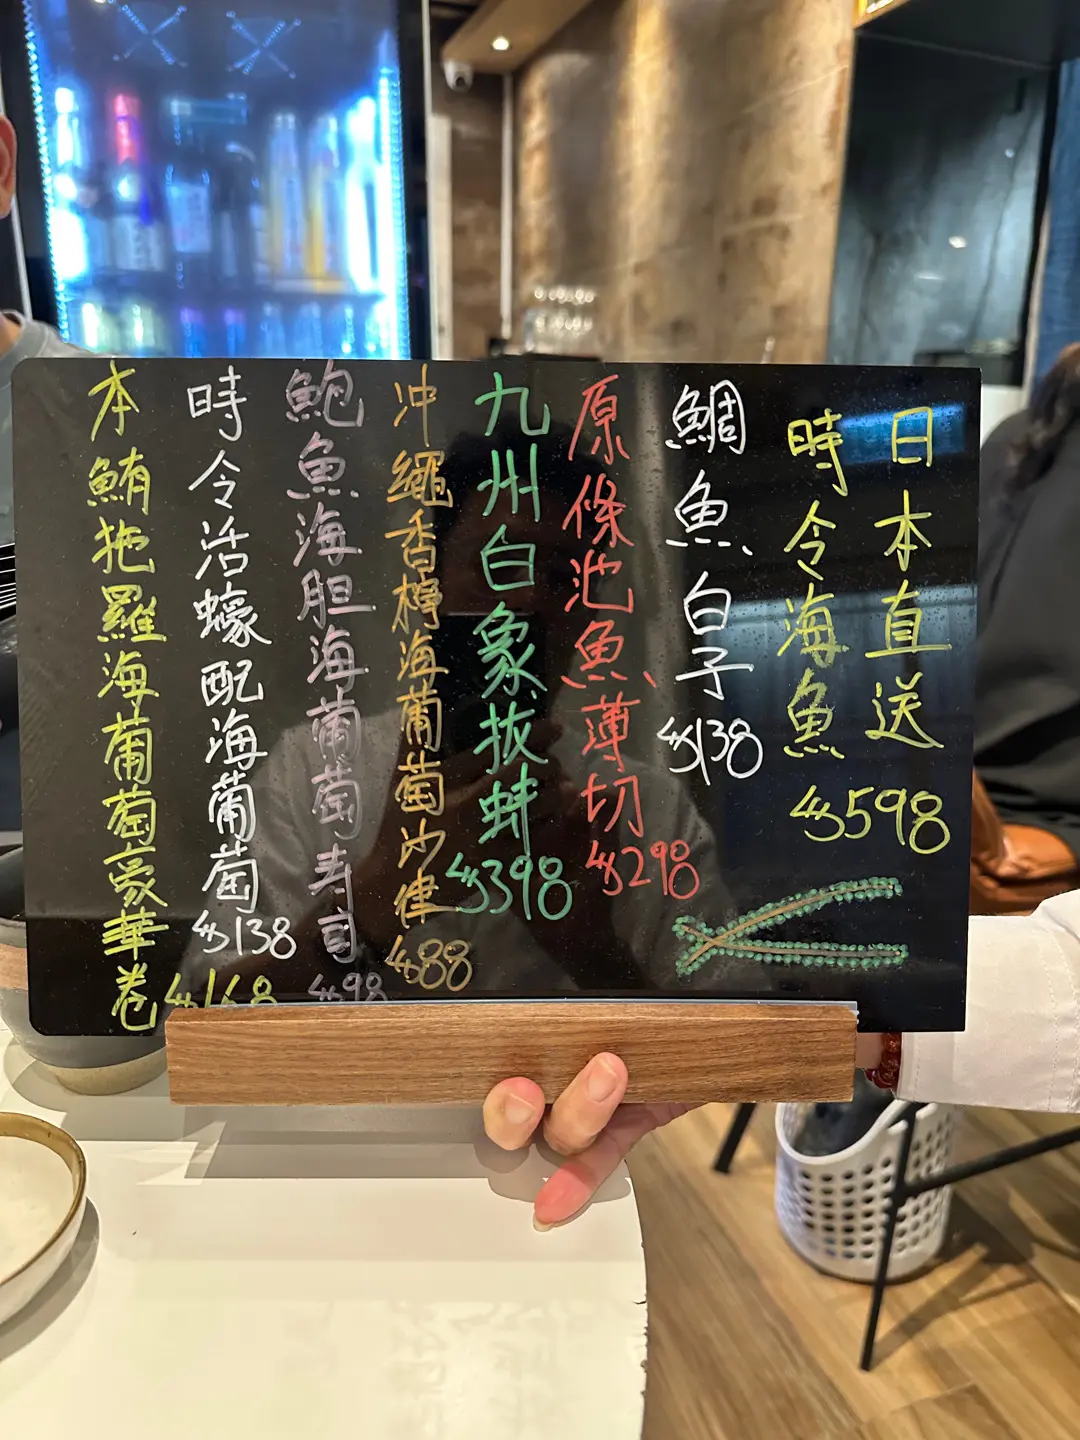 日本直送
時令海魚 $598
鯛魚白子 $138
原條池魚薄切 $298
九州白象拔蚌 $398
沖繩香檸海葡萄沙律 $88
鮑魚海胆海葡萄寿司 $98
時令活蠔配海葡萄 $138
本鮪拖羅海葡萄豪華卷 $168